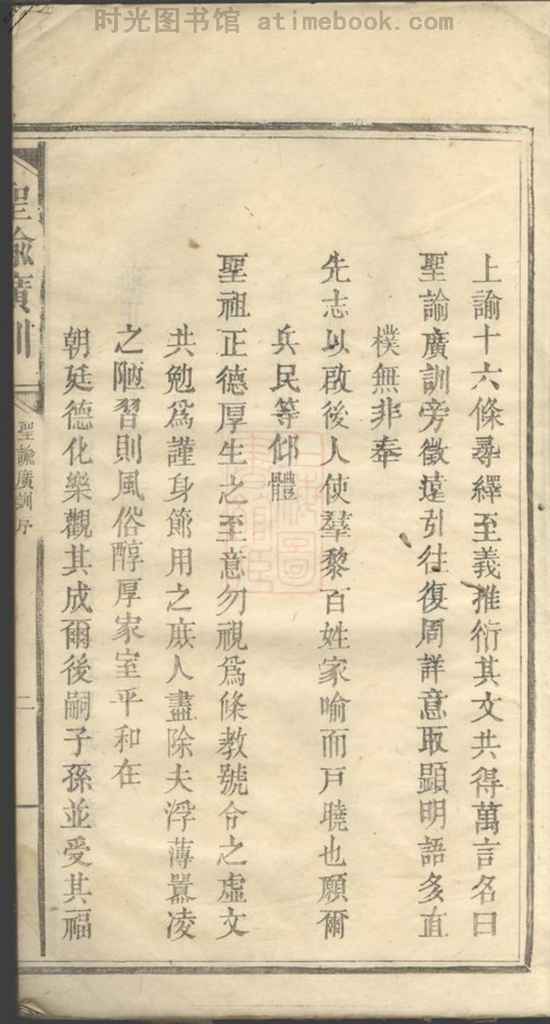 时光图书馆 - atimebook.com
上諭十六條尋繹至義推衍其文共得萬言名曰
聖諭廣訓旁徵遠引往復周詳意取顯明語多直
樸無非奉
先志以啟後人使羣黎百姓家喻而戶曉也願爾
兵民等仰體
聖祖正德厚生之至意勿視爲條教號令之虛文
共勉爲謹身節用之庶人盡除夫浮薄囂凌
之陋習則風俗醇厚家室平和在
朝廷德化樂觀其成爾後嗣子孫並受其福
聖諭廣訓
聖諭廣訓序
二